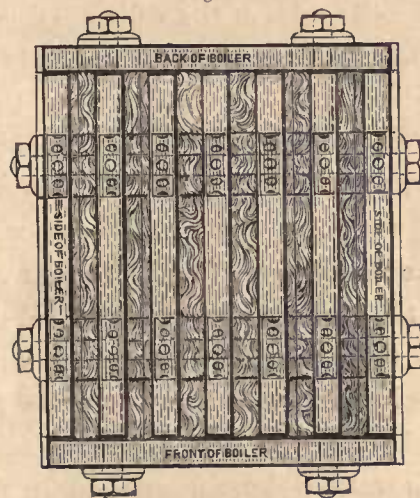 BACK OF BOILER
SIDE OF BOILER
SIDE OF BOILER
FRONT OF BOILER